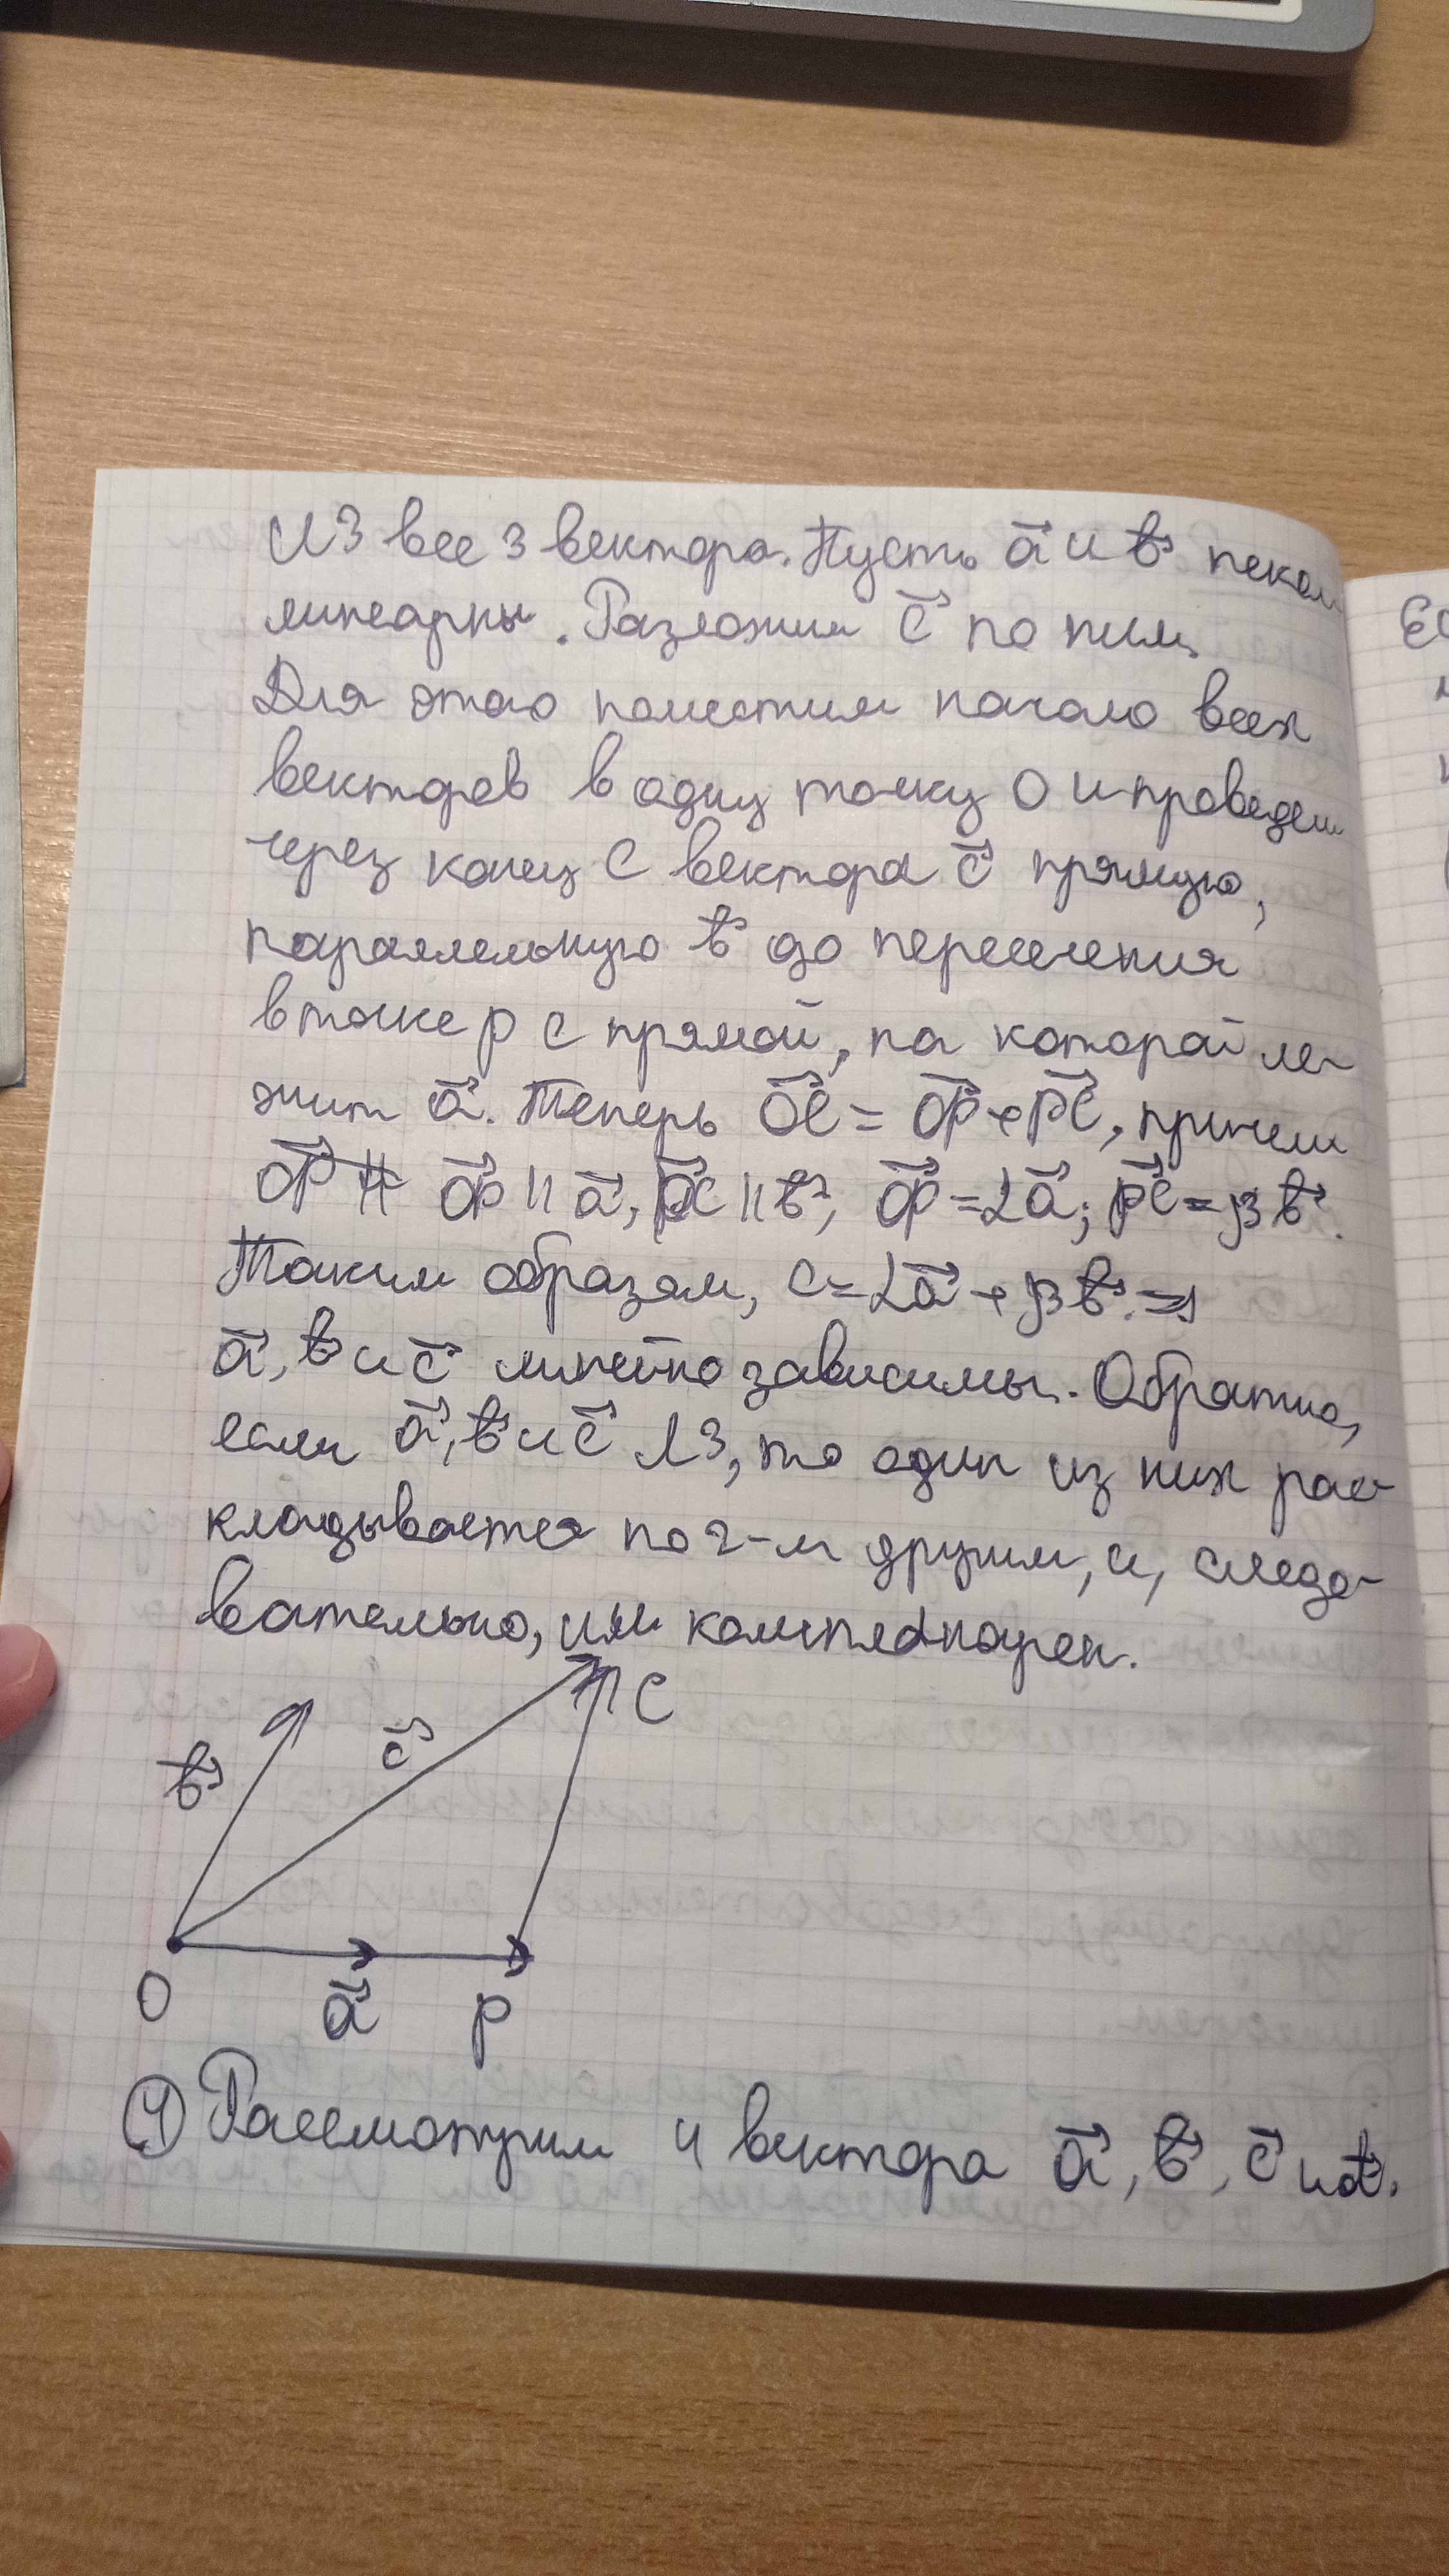 ЛЗ все 3 вектора. Пусть a⃗ и b⃗ некол
линеарны. Разложим c⃗ по ним.
Для этого поместим начало всех
векторов в одну точку O и проведем
через конец C вектора c⃗ прямую,
параллельную b⃗ до пересечения
в точке P с прямой, на которой ле-
жит a⃗. Теперь OC⃗ = OP⃗ + PC⃗, причем
OP⃗ ∥ a⃗, PC⃗ ∥ b⃗, OP⃗ = αa⃗; PC⃗ = βb⃗.
Таким образом, c = αa⃗ + βb⃗. ⇒
a⃗, b⃗ и c⃗ линейно зависимы. Обратно,
если a⃗, b⃗ и c⃗ ЛЗ, то один из них рас-
кладывается по 2-м другим, и, следо-
вательно, им компланарен.
C
b⃗
c⃗
O
a⃗
P
④ Рассмотрим 4 вектора a⃗, b⃗, c⃗ и d⃗.